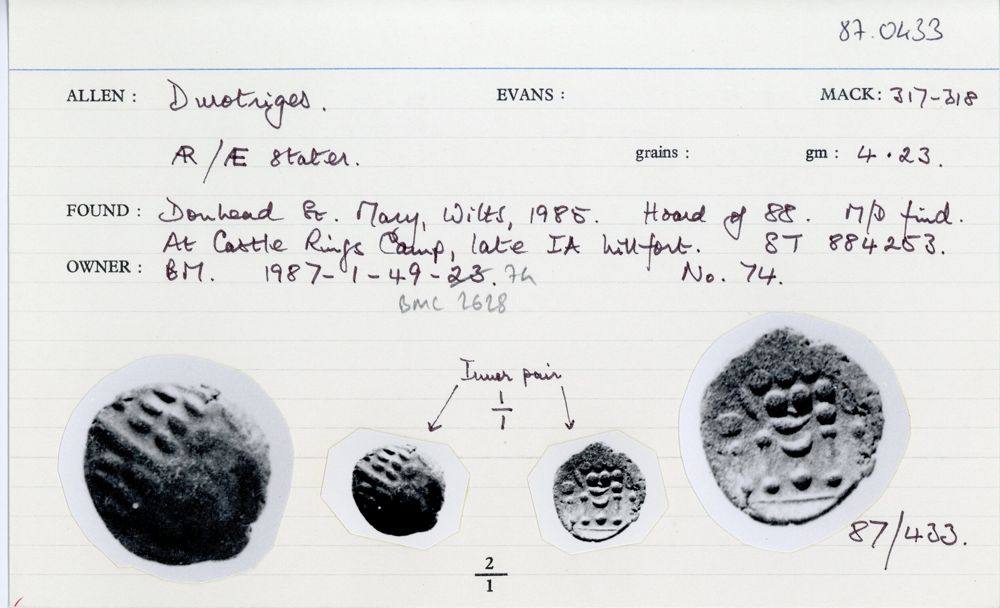 87.0433
ALLEN : Durotriges. EVANS : MACK: 317-318
ÆR/Æ Stater. grains : gm : 4.23.
FOUND : Donhead St. Mary, Wilts, 1985. Hoard of 88. M/D find.
At Castle Rings Camp, late IA hillfort. ST 884253.
OWNER : BM. 1987-1-49-23. 74 No. 74.
BMC 2628
Inner pair
1
1
87/433.
2
1